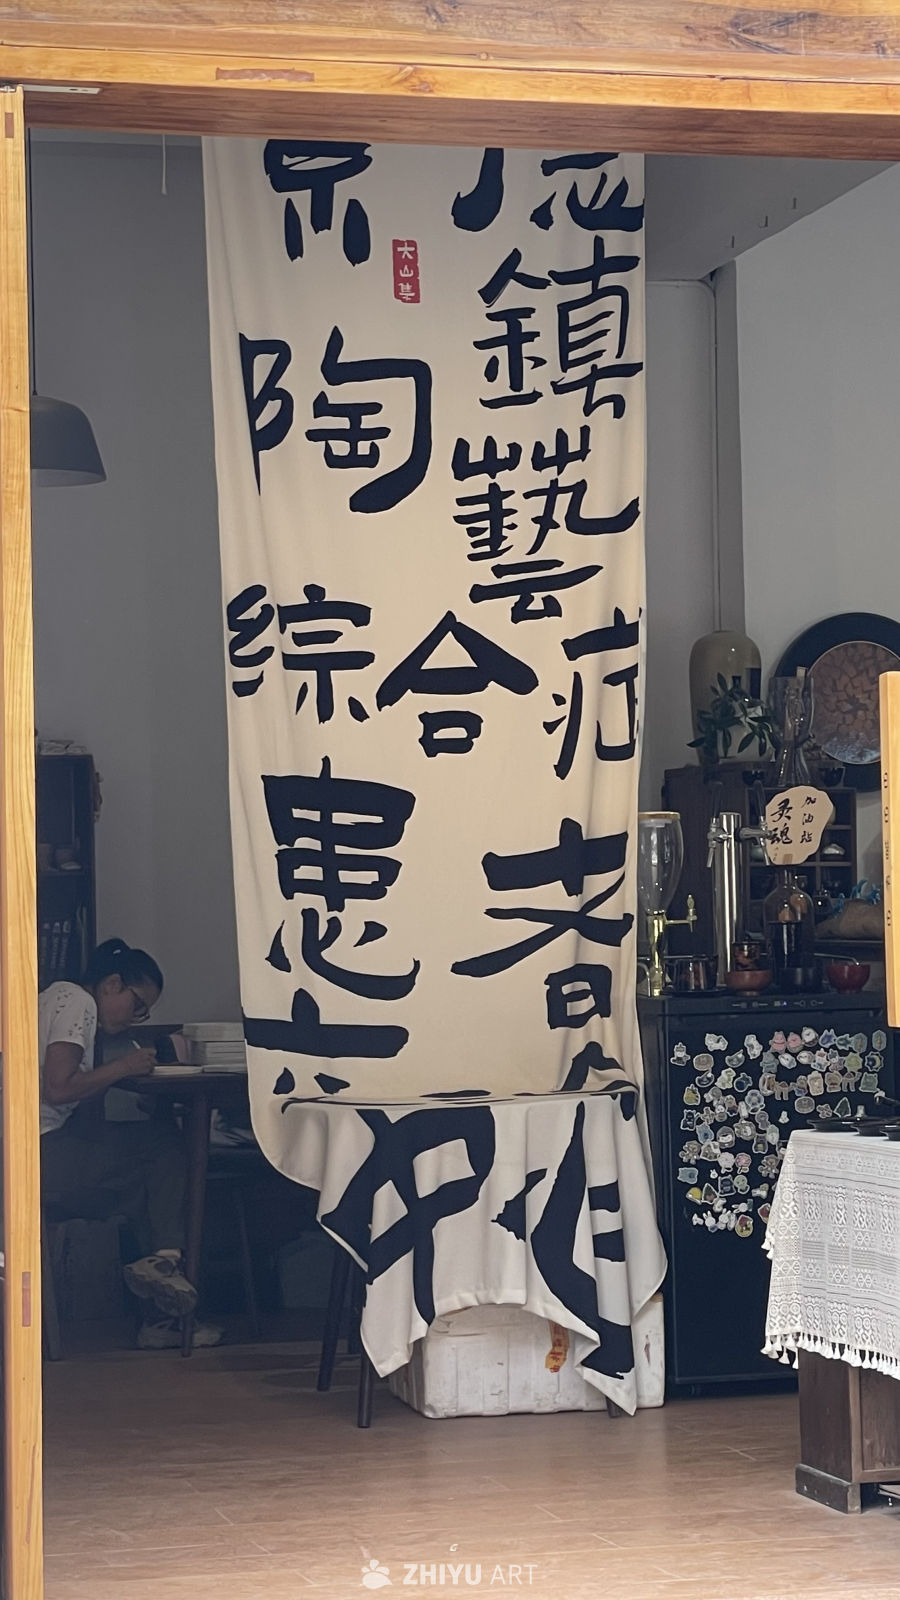 景德
鎮
陶
藝
綜合症
患者
大山集
灵魂
加油站
ZHIYU ART